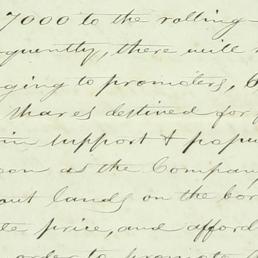 7000 to the rolling
quently, there will
ging to promoters, 6
shares destined for
in support & popu
oon as the Company
ant lands on the bor
te price, and afford
order to promote